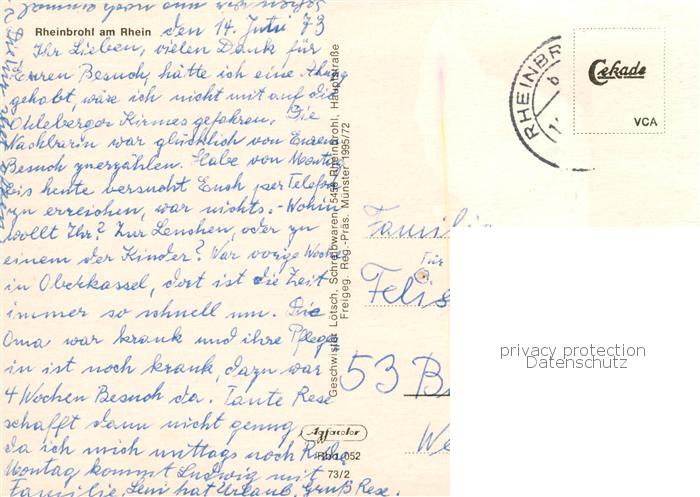 Rheinbrohl am Rhein den 14. Juli 73
Ihr Lieben, vielen Dank für
Euren Besuch, hätte ich eine Ahnung
gehabt, wäre ich nicht mit auf die
Ohleberger Kirmes gefahren. Die
Nachbarin war glücklich von Eurem
Besuch zu erzählen. Habe von Montag
bis heute versucht Euch per Telefon
zu erreichen, war nichts. - Wohin
wollt Ihr? Zur Lenchen, oder zu
einem der Kinder? War vorige Woche
in Oberkassel, dort ist die Zeit
immer so schnell um. Die
Oma war krank und ihre Pfleger
in ist noch krank, dazu war
4 Wochen Besuch da. Tante Rese
schafft dann nicht genug,
da ich mich mittags noch
Montag kommt Ludwig mit
Familie, Leni hat Urlaub. Gruß Rese.
Geschwister Lötsch, Schreibwaren, 5456 Rheinbrohl, Hauptstraße
Freigeg. Reg.-Präs. Münster 1995/72
Agfacolor
Rbo 1052
73/2
RHEINBR
Cekade
VCA
Familie
Felis
53 B
We
privacy protection
Datenschutz